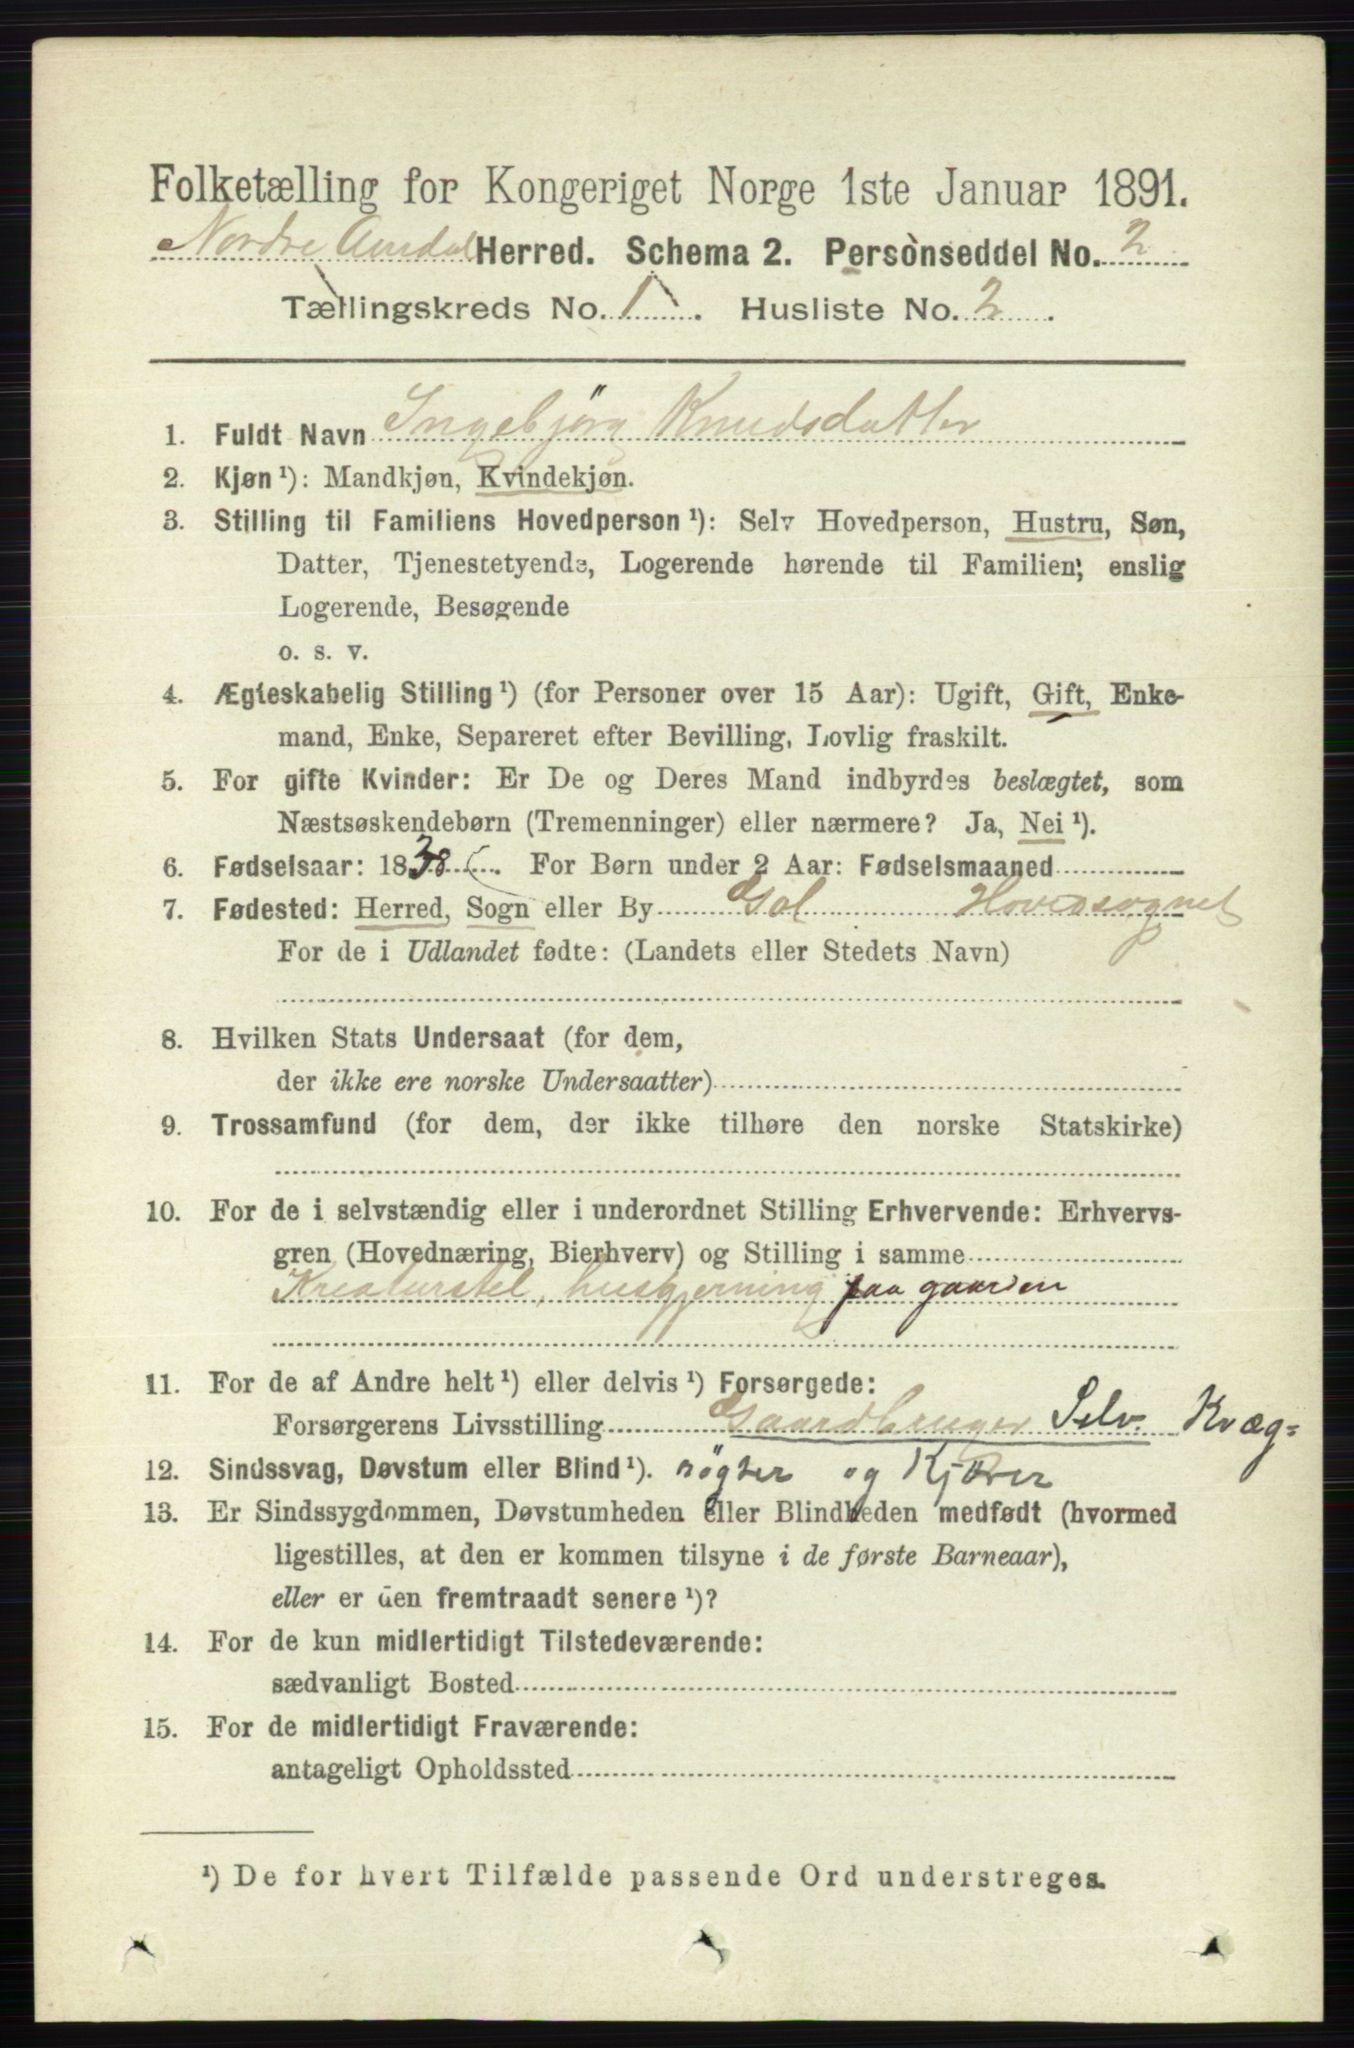 Folketælling for Kongeriget Norge 1ste Januar 1891.
Nordre Aurdal Herred. Schema 2. Personseddel No. 2
Tællingskreds No. 1. Husliste No. 2.
1. Fuldt Navn Ingebjörg Knudsdatter
2. Kjøn ¹): Mandkjøn, Kvindekjøn.
3. Stilling til Familiens Hovedperson ¹): Selv Hovedperson, Hustru, Søn,
Datter, Tjenestetyende, Logerende hørende til Familien, enslig
Logerende, Besøgende
o. s. v.
4. Ægteskabelig Stilling ¹) (for Personer over 15 Aar): Ugift, Gift, Enke-
mand, Enke, Separeret efter Bevilling, Lovlig fraskilt.
5. For gifte Kvinder: Er De og Deres Mand indbyrdes beslægtet, som
Næstsøskendebørn (Tremenninger) eller nærmere? Ja, Nei ¹).
6. Fødselsaar: 1838. For Børn under 2 Aar: Fødselsmaaned
7. Fødested: Herred, Sogn eller By Gol Hovedsognet
For de i Udlandet fødte: (Landets eller Stedets Navn)
8. Hvilken Stats Undersaat (for dem,
der ikke ere norske Undersaatter)
9. Trossamfund (for dem, der ikke tilhøre den norske Statskirke)
10. For de i selvstændig eller i underordnet Stilling Erhvervende: Erhvervs-
gren (Hovednæring, Bierhverv) og Stilling i samme
Kreaturstel, husgjerning paa gaarden
11. For de af Andre helt ¹) eller delvis ¹) Forsørgede:
Forsørgerens Livsstilling Gaardbruger Selv. Kvæg=
12. Sindssvag, Døvstum eller Blind ¹). røgter og
13. Er Sindssygdommen, Døvstumheden eller Blindheden medfødt (hvormed
ligestilles, at den er kommen tilsyne i de første Barneaar),
eller er den fremtraadt senere ¹)?
14. For de kun midlertidigt Tilstedeværende:
sædvanligt Bosted
15. For de midlertidigt Fraværende:
antageligt Opholdssted
¹) De for hvert Tilfælde passende Ord understreges.